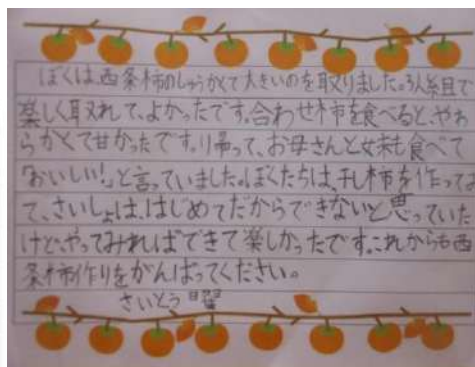 ぼくは、西条柿のしゅうかくで大きいのを取りました。3人組で
楽しく取れて、よかったです。合わせ柿を食べると、やわ
らかくて甘かったです。帰って、お母さんと妹も食べて
「おいしい!」と言っていました。ぼくたちは、干し柿を作って
て、さいしょは、はじめてだからできないと思っていた
けど、やってみればできて楽しかったです。これからも西
条柿作りをがんばってください。
さいとう